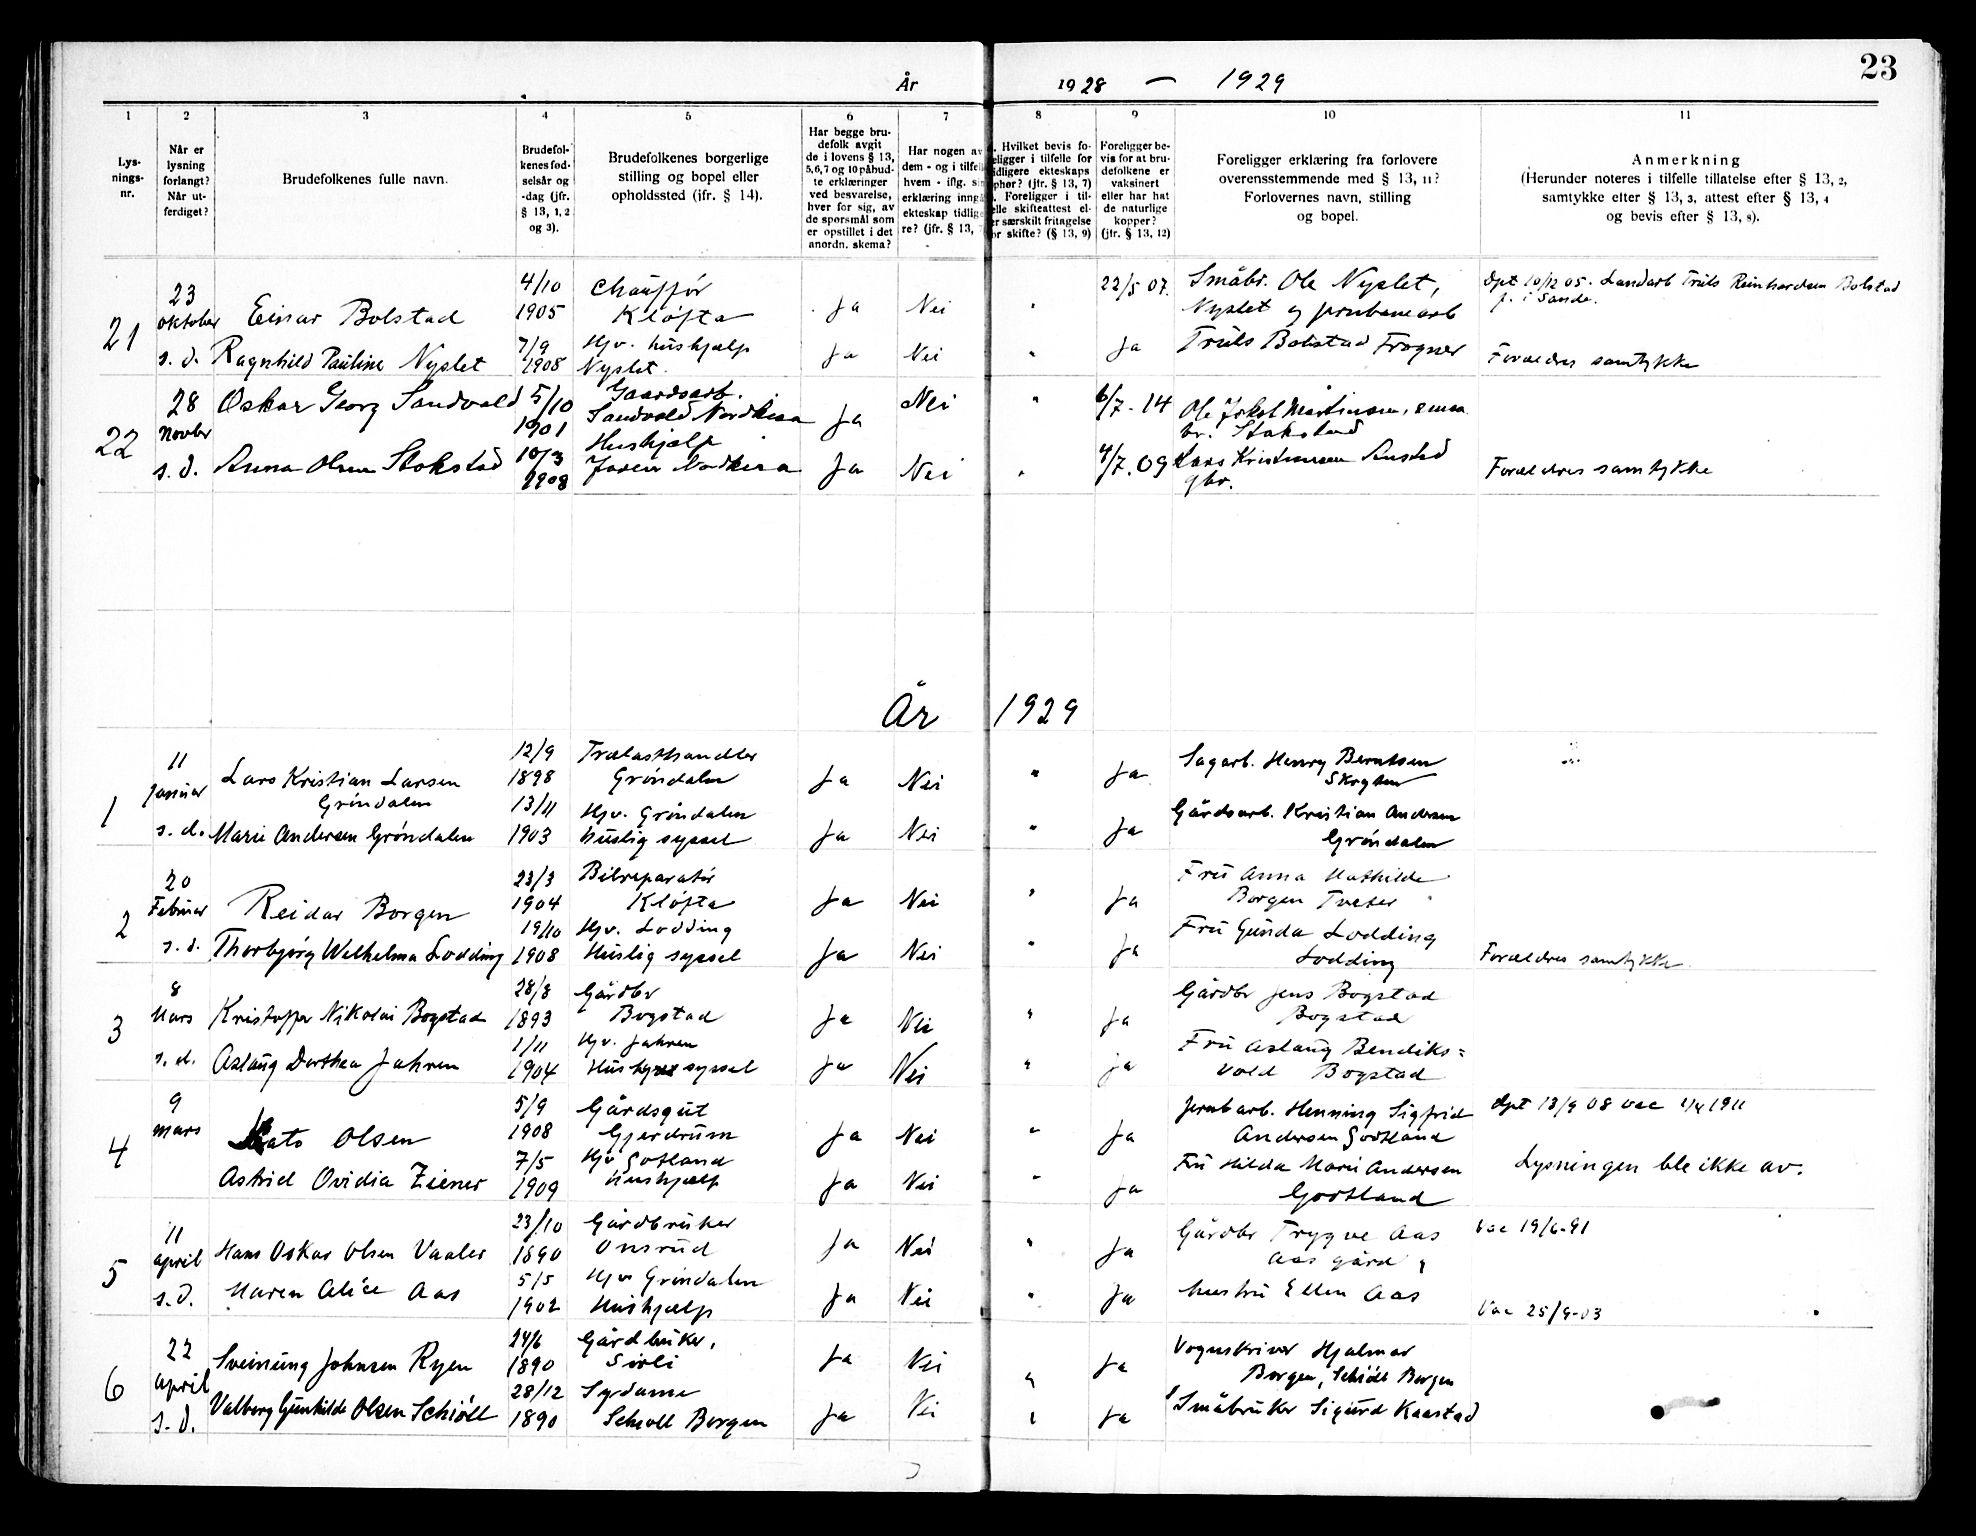 23
År 1928 — 1929
1 2 3 4 5 6 7 8 9 10 11
Lys-
nings-
nr.
Når er
lysning
forlangt?
Når ut-
ferdiget?
Brudefolkenes fulle navn.
Brudefol-
kenes fød-
selsår og
-dag (jfr.
§ 13, 1, 2
og 3).
Brudefolkenes borgerlige
stilling og bopel eller
opholdssted (jfr. § 14).
Har begge bru-
defolk avgit
de i lovens § 13,
5,6,7 og 10 påbud-
te erklæringer
ved besvarelse,
hver for sig, av
de spørsmål som
er opstillet i det
anordn. skema?
Har nogen av
dem - og i tilfel
hvem - iflg. sin
erklæring inngå
ekteskap tidlige
re? (jfr. § 13,
Hvilket bevis fo-
religger i tilfelle for
tidligere ekteskaps
ophør? (jfr. § 13, 7)
Foreligger i til-
felle skifteattest el-
er særskilt fritagelse
or skifte? (§ 13, 9)
Foreligger be-
vis for at bru-
defolkene er
vaksinert
eller har hat
de naturlige
kopper?
(jfr. § 13, 12)
Foreligger erklæring fra forlovere
overensstemmende med § 13, 11?
Forlovernes navn, stilling
og bopel.
Anmerkning
(Herunder noteres i tilfelle tillatelse efter § 13, 2,
samtykke efter § 13, 3, attest efter § 13, 4
og bevis efter § 13, 8).
21
23
oktober
Einar Bolstad
4/10
1905
Chauffør
Kløfta
Ja Nei " 22/5 07.
Småbr. Ole Nyslet,
Nyslet og jernbanearb
døpt 10/12 05. Landarb Truls Reinhardsen Bolstad
f. i Sande.
s. d. Ragnhild Pauline Nyslet
7/9
1908
Hjv. hushjælp
Nyslet.
Ja Nei " Ja
Truls Bolstad Frogner
Forældres samtykke
22
28
Novbr
Oskar Georg Sandvold
5/10
1901
Gaardsarb.
Sandvold Nordkisa
Ja Nei " 6/7. 14
Ole Martinsen, smaa
br. Stokstad
s. d. Anna Olsen Stokstad
10/3
1908
Hushjælp
Nordkisa
Ja Nei " 4/7. 09
Lars Kristiansen
gbr.
Forældres samtykke
År 1929
1
11
Januar
Lars Kristian Larsen
Grøndalen
12/9
1898
Trælasthandler
Grøndalen
Ja Nei " Ja
Sagarb. Henry Berntsen
s. d. Marie Andersen Grøndalen
13/11
1903
Hjv. Grøndalen
huslig syssel
Ja Nei " Ja
Gårdsarb. Kristian Andersen
Grøndalen
2
20
Februar
Reidar Borgen
23/3
1904
Bilreparatør
Kløfta
Ja Nei " Ja
Fru Anna Mathilde
Borgen Tveter
s. d. Thorbjørg Wilhelma Lodding
19/10
1908
Hjv. Lodding
Huslig syssel
Ja Nei " Ja
Fru Gunda Lodding
Lodding
Forældres samtykke
3
8
Mars
Kristoffer Nikolai Bogstad
28/8
1893
Gårdbr
Bogstad
Ja Nei " Ja
Gårdbr Jens Bogstad
Bogstad
s. d. Aslaug Dorthea Jahren
1/11
1904
Hjv. Jahren
syssel
Ja Nei " Ja
Fru Aslaug Bendiks=
vold Bogstad
4
9
Mars
Kato Olsen
5/9
1908
Gårdsgut
Gjerdrum
Ja Nei " Ja
Jernb arb. Henning Sigfrid
Andersen Gotland
døpt 13/9 08 vac 1911
Astrid Ovidia Ziener
7/5
1909
Hjv Gotland
hushjælp
Ja Nei " Ja
Fru Hilda Marie Andersen
Gottland
Lysningen ble ikke av.
5
11
april
Hans Oskar Olsen Vaaler
23/10
1890
Gårdbruker
Onsrud
Ja Nei " Ja
Gårdbr Trygve Aas
Aas gård
Vac 19/6-91
s. d. Maren Alice Aas
5/5
1902
Hjv Grøndalen
Hushjælp
Ja Nei " Ja
hustru Ellen Aas
Vac 25/9-03
6
22
april
Sveinung Johnsen Ryen
24/6
1890
Gårdbruker,
Ja Nei Ja
Vognskriver Hjalmar
Borgen, Schiøll Borgen
s. d. Valborg Gunhilde Olsen Schiøll
28/12
1890
Sydame
Schiøll Borgen
Ja Nei Ja
Småbruker Sigurd Kaastad